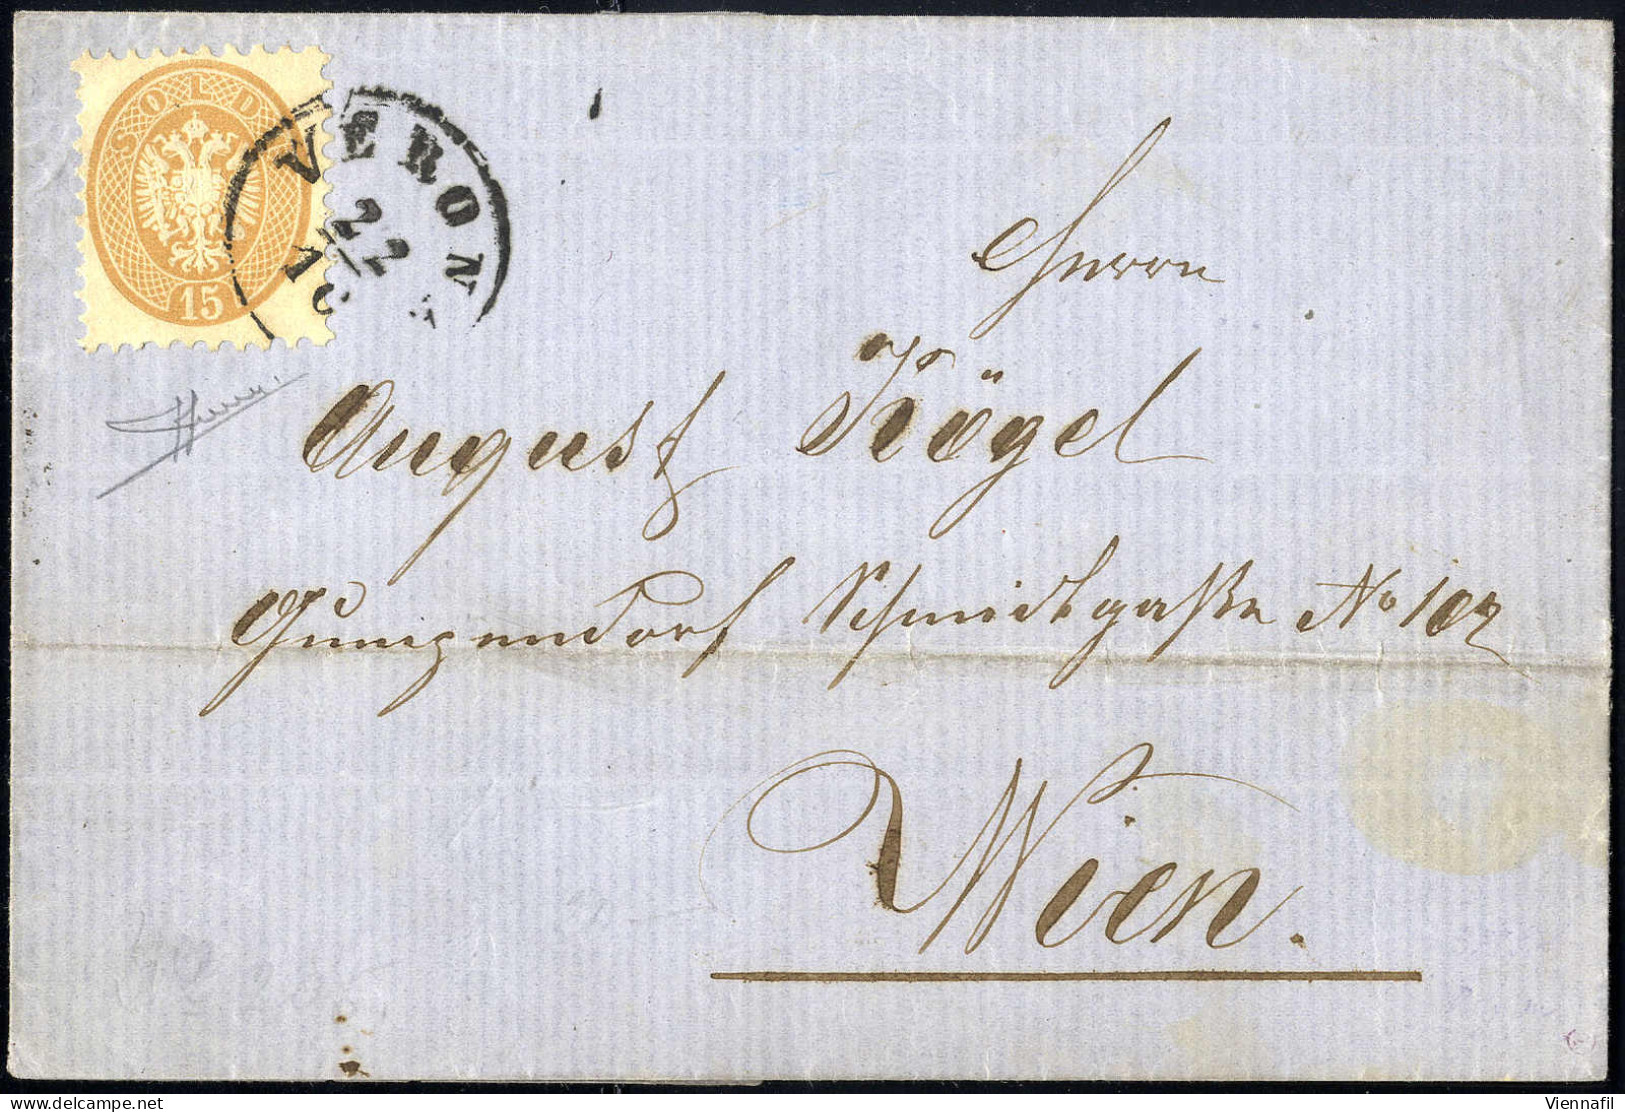 SOLD
15
VERONA
22
Herrn
August Kögel
Gumpendorf Schmidtgaße No 102
Wien.
delcampe.net
Viennafil